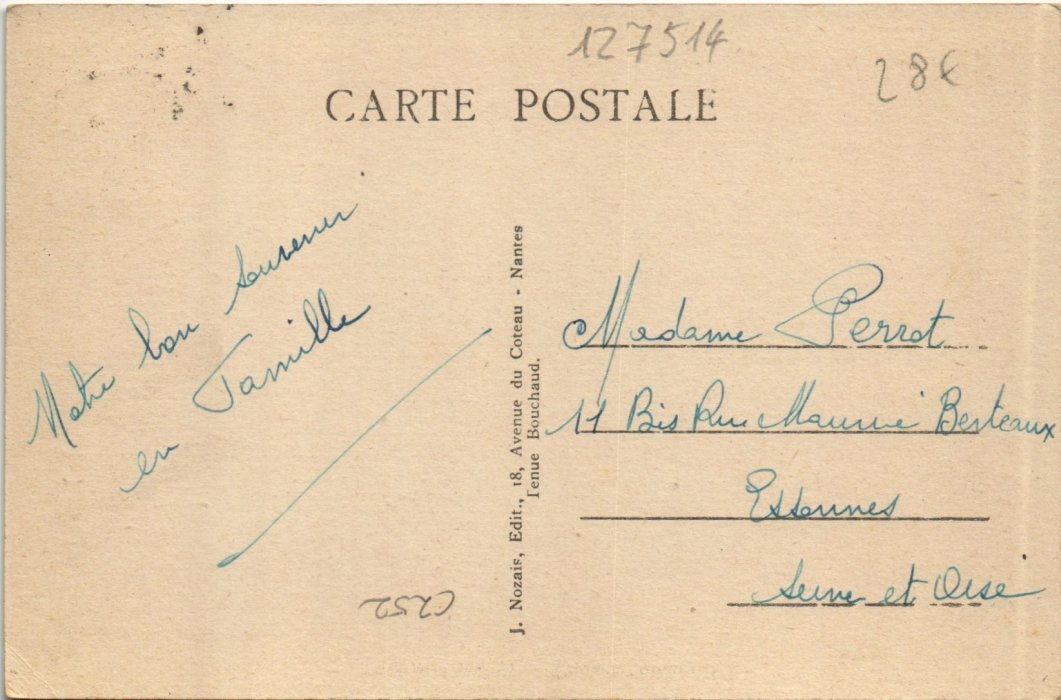 127514
28€
CARTE POSTALE
Notre bon souvenir
en Famille
J. Nozais, Edit., 18, Avenue du Coteau - Nantes
Tenue Bouchaud.
Madame Perrot
11 Bis Rue Maurice Berteaux
Essonnes
Seine et Oise
C252